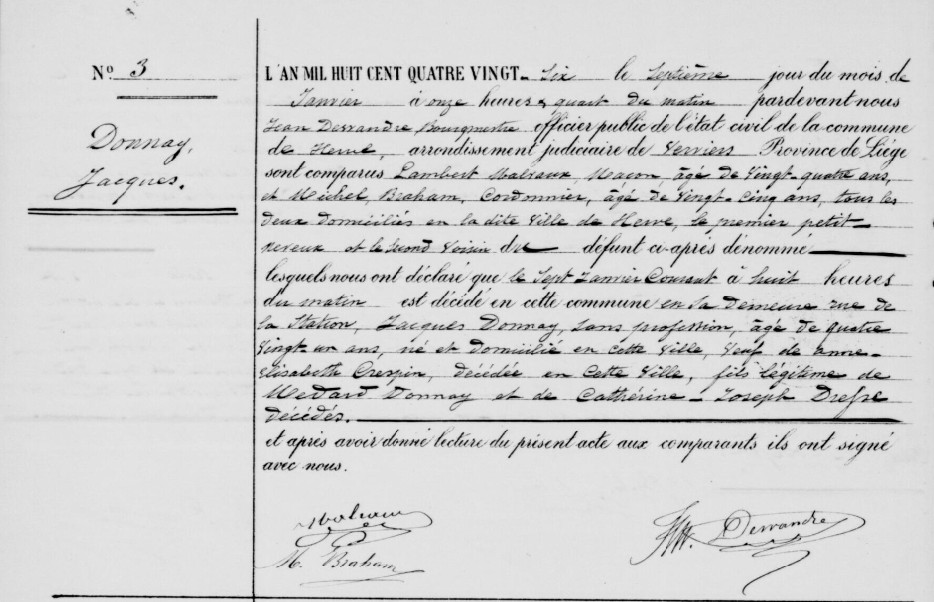 Nº 3
Donnay,
Jacques.
L'AN MIL HUIT CENT QUATRE VINGT-Six le Septième jour du mois de
Janvier à onze heures & quart du matin pardevant nous
Jean Dewandre Bourgmestre officier public de l'état civil de la commune
de Herve, arrondissement judiciaire de Verviers Province de Liége
sont comparus Lambert Malvaux, Maçon, âgé de Vingt-quatre ans,
et Michel, Braham, Cordonnier, âgé de Vingt-Cinq ans, tous les
deux domiciliés en la dite Ville de Herve, le premier petit-
neveux et le second Voisin du défunt ci-après dénommé
lesquels nous ont déclaré que le Sept Janvier Courant à huit heures
du matin est décédé en cette commune en sa demeure rue de
la Station, Jacques Donnay, sans profession, âgé de quatre
Vingt-un ans, né et domicilié en cette Ville, Veuf de anne-
Elisabette Crespin, décédée en cette Ville, fils légitime de
Medard Donnay et de Cathérine-Joseph
décédés.
et après avoir donné lecture du présent acte aux comparants ils ont signé
avec nous.
Malvaux
M. Braham
Dewandre